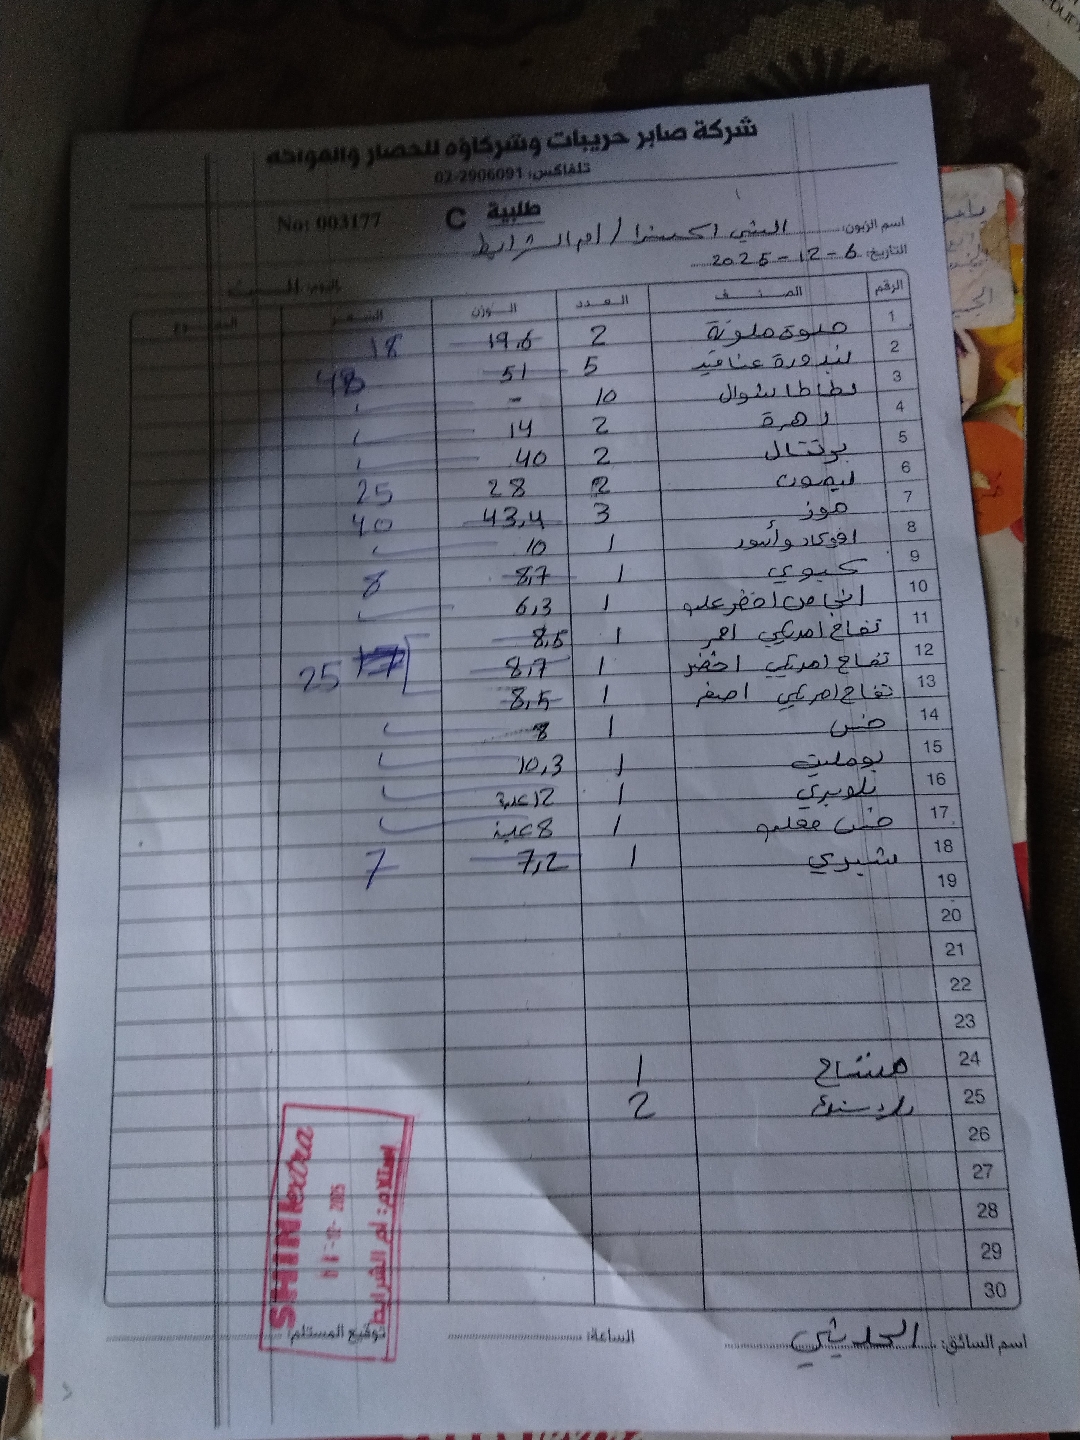 شركة صابر حريبات وشركاؤه للخضار والفواكه
تلفاكس: 02-2906091
طلبية C No: 003177
اسم الزبون: الشني اكسترا / ام الشرايط
التاريخ: 6-12-2025
اليوم: السبت
الرقم الصنف العدد الوزن السعر المجموع
1 حلوة ملونة 2 19,6 18
2 بندورة عناقيد 5 51 48
3 بطاطا شوال 10 -
4 زهرة 2 14
5 برتقال 2 40
6 ليمون 2 28 25
7 موز 3 43,4 40
8 افوكادو أسود 1 10
9 كيوي 1 8,7 8
10 انجاص اخضر علب 1 6,3
11 تفاح امريكي احمر 1 8,5
12 تفاح امريكي اخضر 1 8,7 25
13 تفاح امريكي اصفر 1 8,5
14 خس 1 8
15 بوملي 1 10,3
16 بلوبري 1 12 علبة
17 خس مغلف 1 8 علبة
18 شيري 1 7,2 7
19
20
21
22
23
24 مشتاح 1
25 بلاستيك 2
26
27
28
29
30
SHINI extra
2025
استلام: ام الشرايط
اسم السائق: الحديثي الساعة: توقيع المستلم: